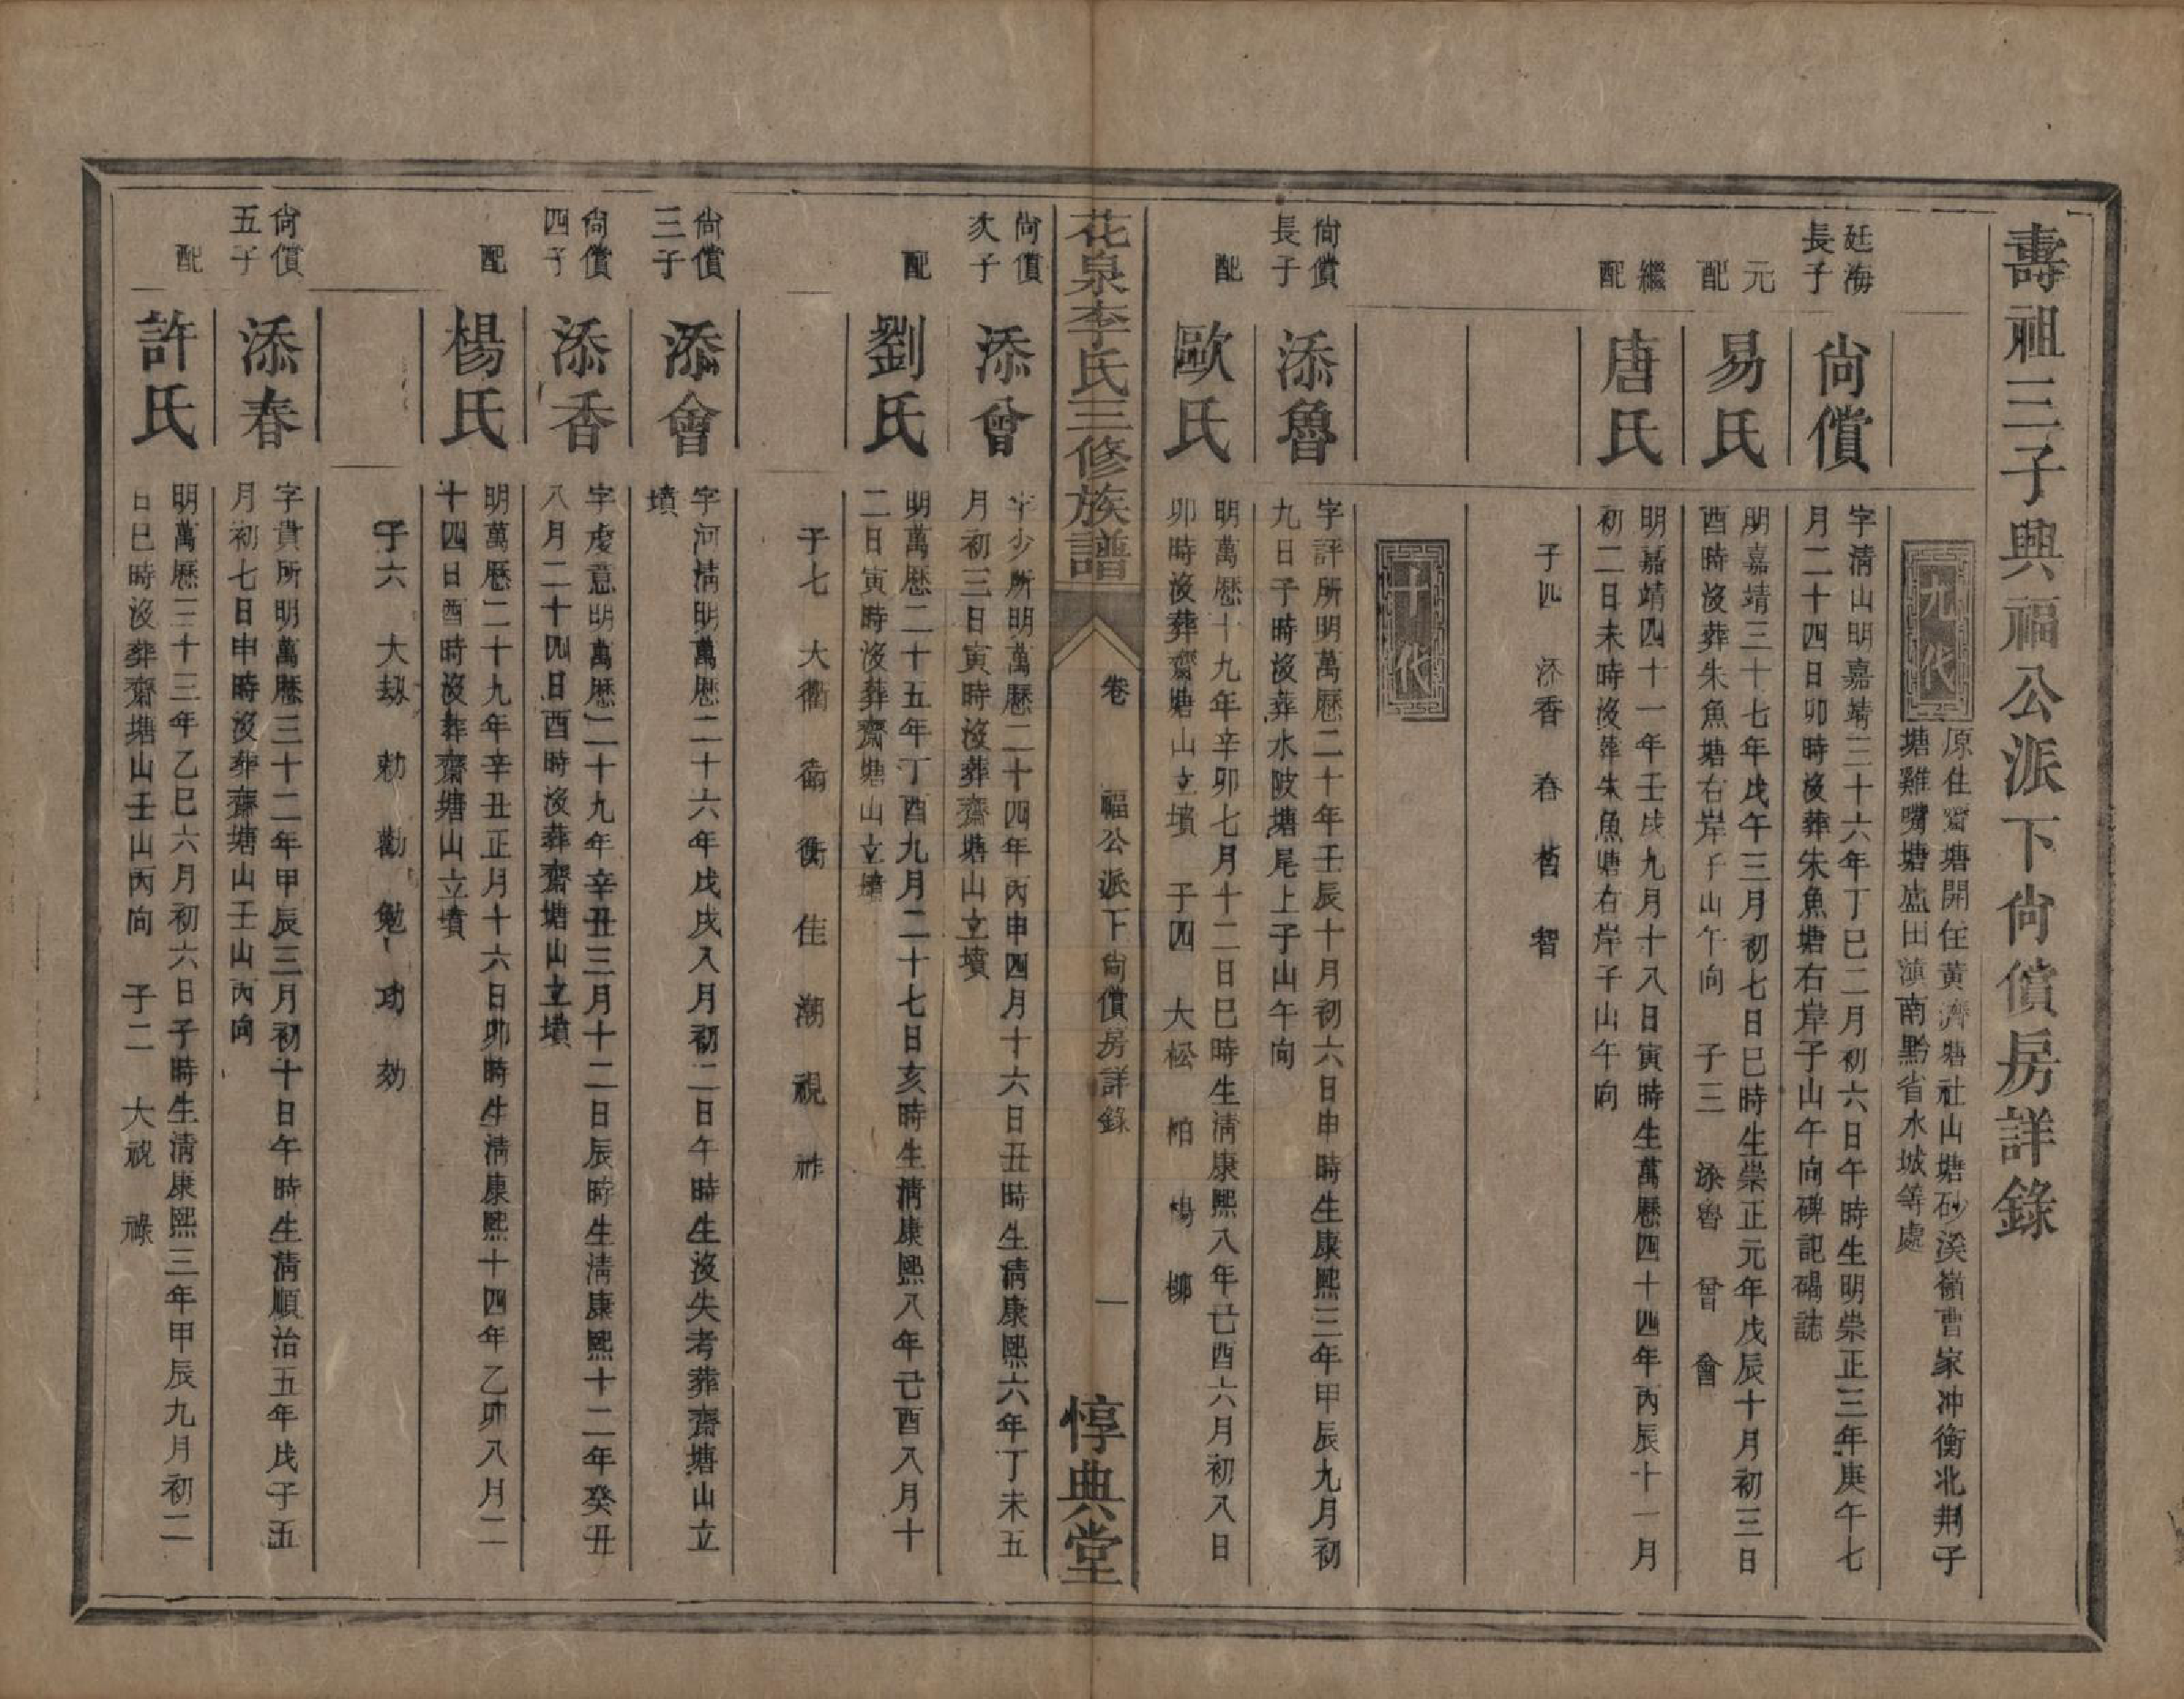 壽祖三子興福公派下尙償房詳錄
九代
原住齋塘開住黃濟塘社山塘砂溪嶺曹家冲衡北荆子
塘雞嘴塘盛田滇南黔省水城等處
廷海長子
尙償
字淸山明嘉靖三十六年丁巳二月初六日午時生明崇正三年庚午七
月二十四日卯時沒葬朱魚塘右岸子山午向碑記碣誌
元配
易氏
明嘉靖三十七年戊午三月初七日巳時生崇正元年戊辰十月初三日
酉時沒葬朱魚塘右岸子山午向 子三 添魯 曾 會
繼配
唐氏
明嘉靖四十一年壬戌九月十八日寅時生萬曆四十四年丙辰十一月
初二日未時沒葬朱魚塘右岸子山午向
子四 添香 春 哲 智
十代
尙償長子
添魯
字評所明萬曆二十年壬辰十月初六日申時生康熙三年甲辰九月初
九日子時沒葬水陂塘尾上子山午向
配
歐氏
明萬曆十九年辛卯七月十二日巳時生淸康熙八年己酉六月初八日
卯時沒葬齋塘山立墳 子四 大松 柏 楊 柳
花泉李氏三修族譜
卷
福公派下尙償房詳錄
一
惇典堂
尙償次子
添曾
字少所明萬曆二十四年丙申四月十六日丑時生淸康熙六年丁未五
月初三日寅時沒葬齋塘山立墳
配
劉氏
明萬曆二十五年丁酉九月二十七日亥時生淸康熙八年己酉八月十
二日寅時沒葬齋塘山立墳
子七 大衢 衛 衡 佳 潮 視 祚
尙償三子
添會
字河淸明萬曆二十六年戊戌八月初二日午時生沒失考葬齋塘山立
墳
尙償四子
添香
字虔意明萬曆二十九年辛丑三月十二日辰時生淸康熙十二年癸丑
八月二十四日酉時沒葬齋塘山立墳
配
楊氏
明萬曆二十九年辛丑正月十六日卯時生淸康熙十四年乙卯八月二
十四日酉時沒葬齋塘山立墳
子六 大刼 勅 勸 勉 功 効
尙償五子
添春
字貴所明萬曆三十二年甲辰三月初十日午時生淸順治五年戊子五
月初七日申時沒葬齋塘山壬山丙向
配
許氏
明萬曆三十三年乙巳六月初六日子時生淸康熙三年甲辰九月初二
日巳時沒葬齋塘山壬山丙向 子二 大視 祿